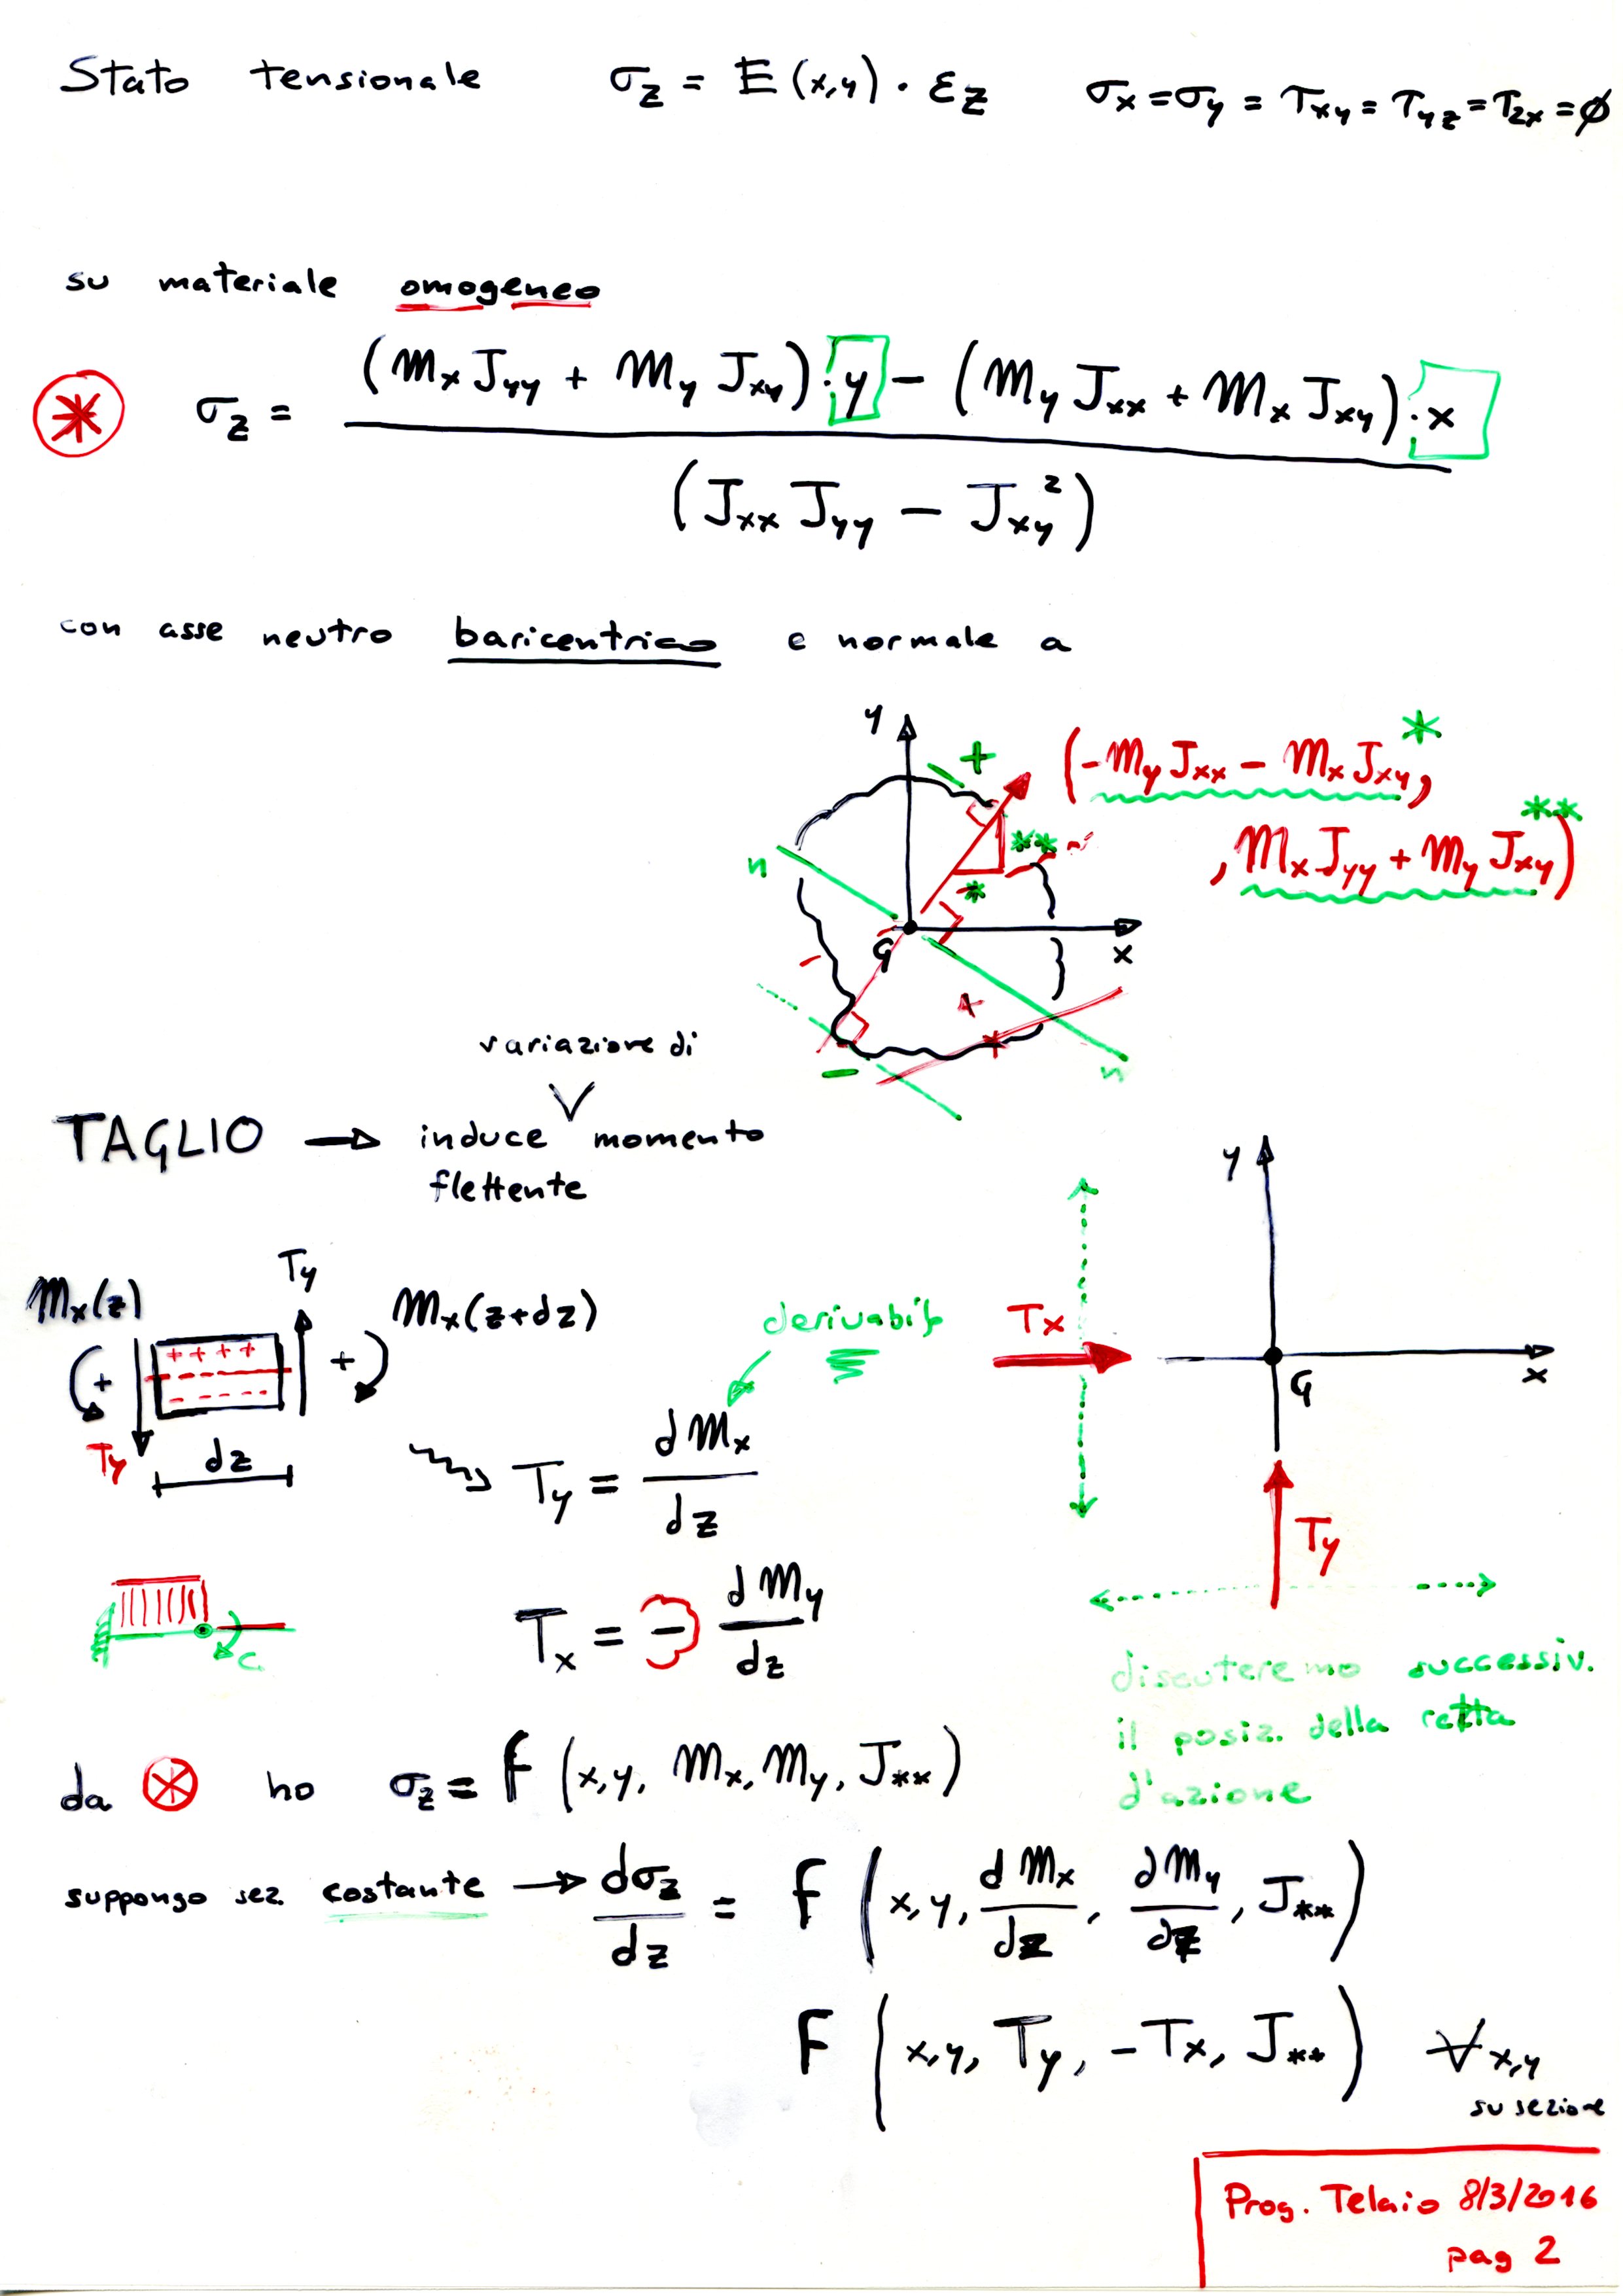 Stato tensionale σz = E(x,y) · εz σx = σy = τxy = τyz = τzx = ∅
su materiale omogeneo
⊛ σz = ((Mx Jyy + My Jxy) · y − (My Jxx + Mx Jxy) · x) / (Jxx Jyy − Jxy²)
con asse neutro baricentrico e normale a
y + (-My Jxx − Mx Jxy, *
** , Mx Jyy + My Jxy) **
n *
G x
-
+
- n
variazione di
TAGLIO → induce V momento
flettente
y
Ty
Mx(z) Mx(z+dz) derivabile
+ + + + + + Tx
- - - - G x
Ty dz Ty = dMx/dz
Ty
Tx = − dMy/dz
C
discuteremo successiv.
il posiz. della retta
d'azione
da ⊛ ho σz = f (x,y, Mx, My, J**)
suppongo sez. costante → dσz/dz = f (x,y, dMx/dz, dMy/dz, J**)
F (x,y, Ty, −Tx, J**) ∀x,y
su sezione
Prog. Telaio 8/3/2016
pag 2